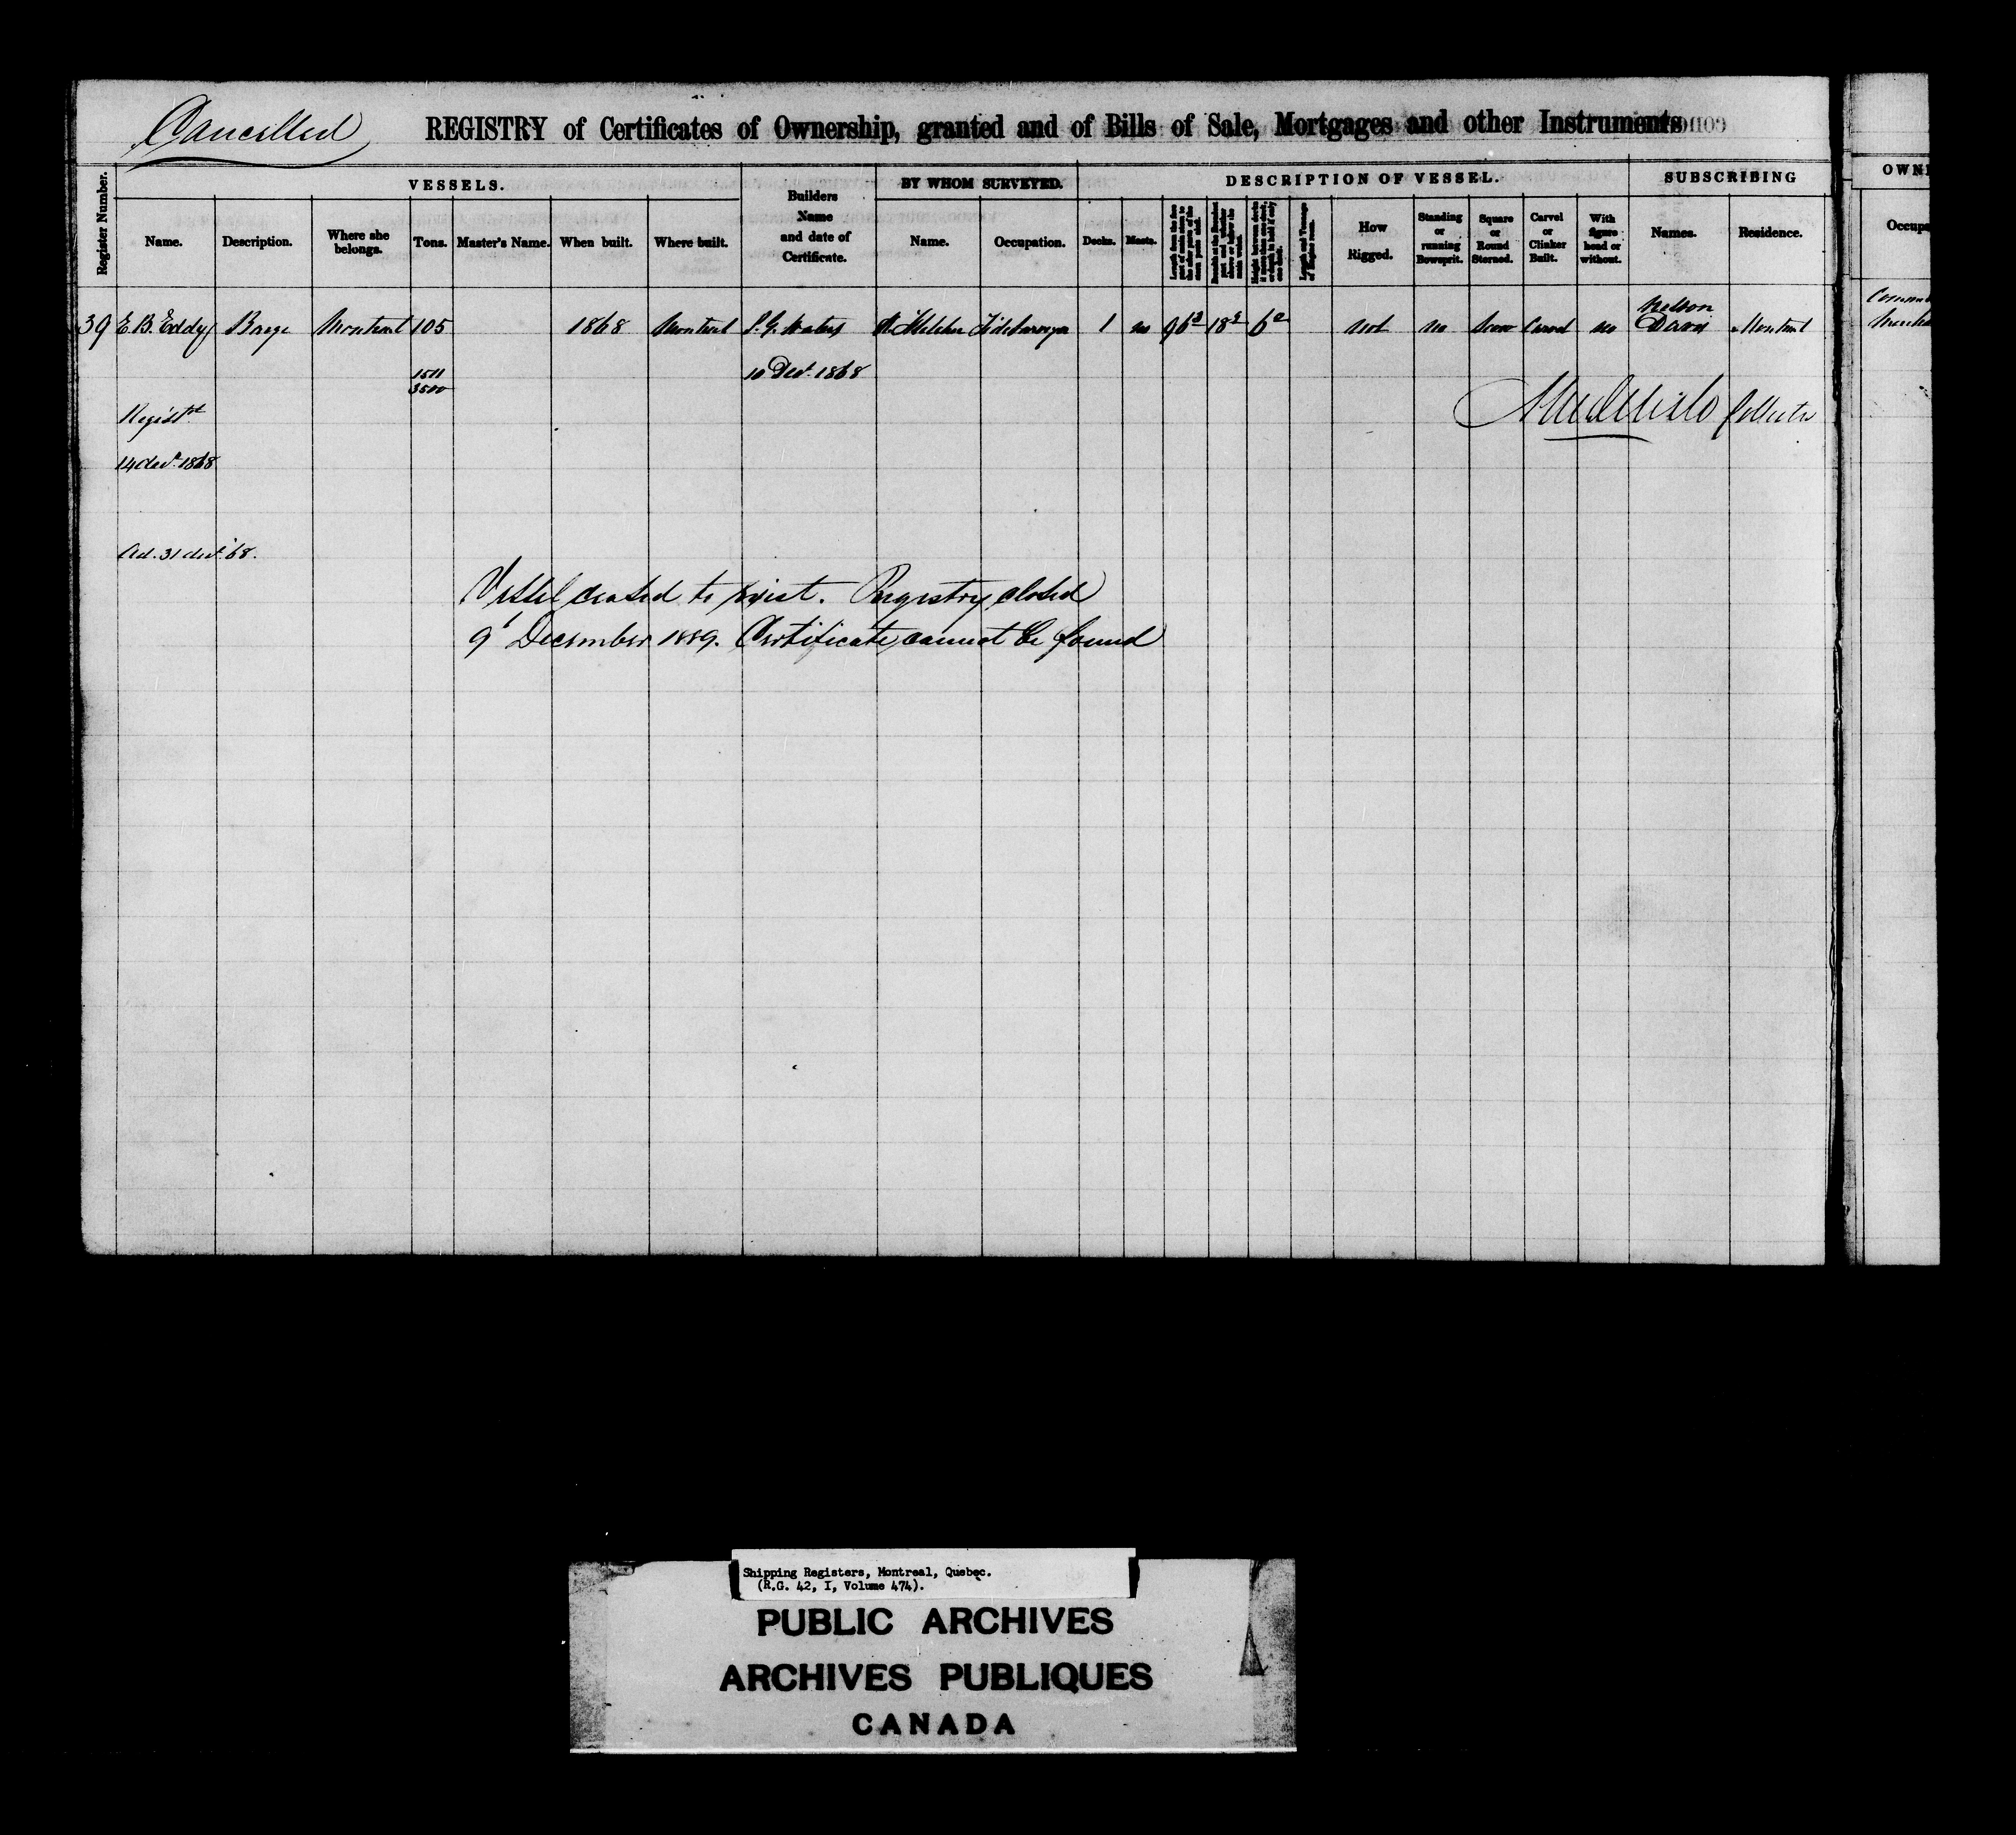 Cancelled REGISTRY of Certificates of Ownership, granted and of Bills of Sale, Mortgages and other Instruments
VESSELS. BY WHOM SURVEYED. DESCRIPTION OF VESSEL. SUBSCRIBING
OWNE
Register Number. Name. Description. Where she belongs. Tons. Master's Name. When built. Where built. Builders Name and date of Certificate. Name. Occupation. Decks. Masts. How Rigged. Standing or running Bowsprit. Square or Round Sterned. Carvel or Clinker Built. With figure head or without. Names. Residence. Occupa
39 E. B. Eddy Barge Montreal 105 1868 Montreal 1 no 96 18 6 not no Scow Carvel no Nelson Davis Montreal
1511
3500
10 Decr. 1868
Collector
Registd
14 decr. 1868
Ad. 31 decr. 68.
Vessel ceased to exist. Registry closed
9t December 1889. Certificate cannot be found
Shipping Registers, Montreal, Quebec.
(R.G. 42, I, Volume 474).
PUBLIC ARCHIVES
ARCHIVES PUBLIQUES
CANADA